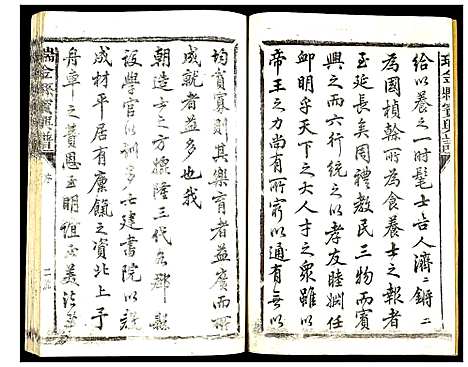 給以養之一時髦士吉人濟二鏘二
為國楨榦所為食養士之報者
至延長矣周禮教民三物而賓
興之而六行統之以孝友睦婣任
卹明乎天下之大人才之眾雖以
帝王之力尚有所窮以通有無以
均貧寡則其樂育者益廣而所
成就者益多也我
朝造士之方媲隆三代各郡縣
設學官以訓多士建書院以課
成材平居有廩餼之資北上予
舟車之費恩至明誼至美法
瑞金縣賓興譜